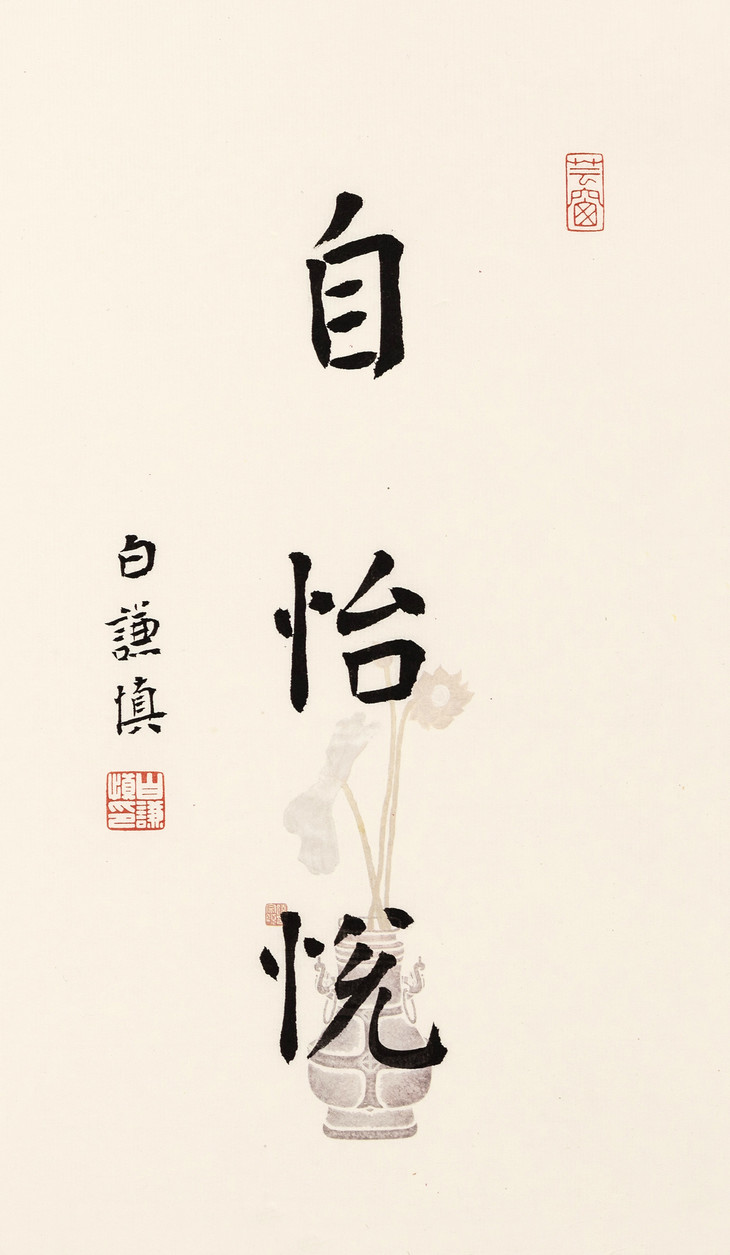 芸窗
自怡悦
白謙慎
白謙慎印